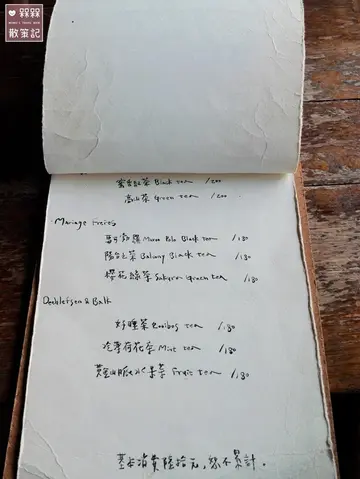 槑槑
散策記
蜜香紅茶 Black tea /200
高山茶 Green tea /200
Mariage Freres
馬可勃羅 Marco Polo Black tea /180
陽台上茶 Balcony Black tea /180
櫻花綠茶 Sakura Green tea /180
& Balk
好睡茶 Rooibos tea /180
冷季荷花茶 Mint tea /180
莫內的 水果茶 Fruit tea /180
基本消費陸拾元，恕不累計。